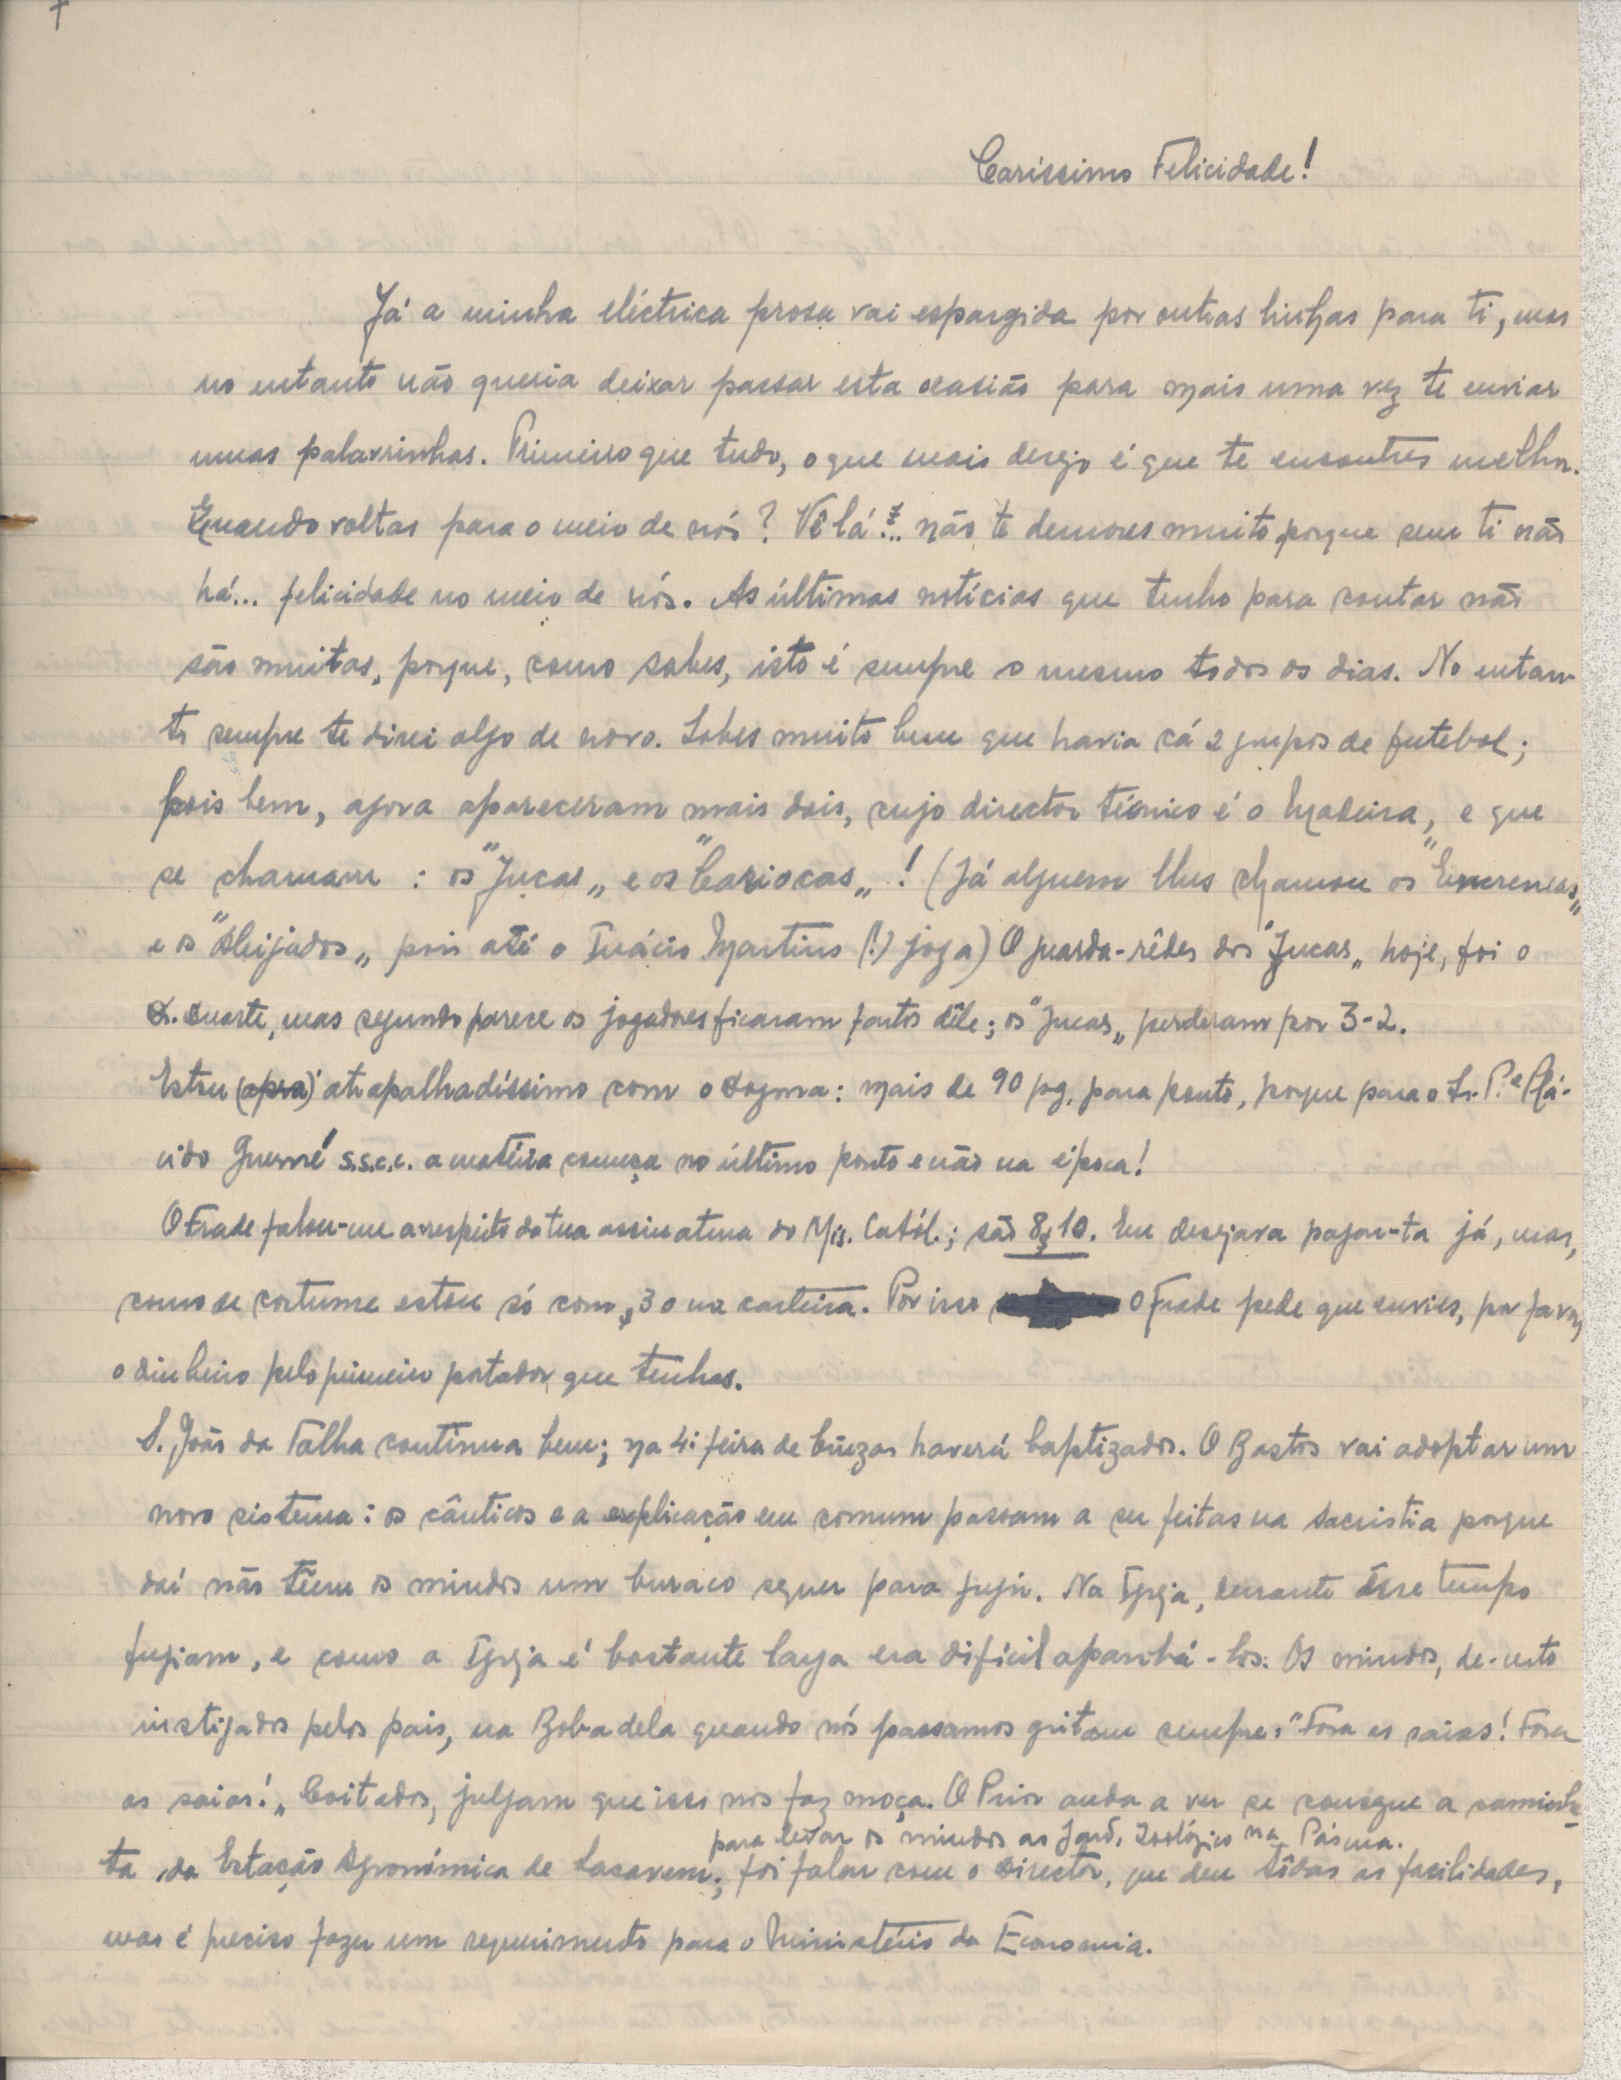 Caríssimo Felicidade!
Já a minha eléctrica prosa vai espargida por outras linhas para ti, mas
no entanto não queria deixar passar esta ocasião para mais uma vez te enviar
umas palavrinhas. Primeiro que tudo, o que mais desejo é que te encontres melhor.
Quando voltas para o meio de nós? Vê lá!.. não te demores muito porque sem ti não
há... felicidade no meio de nós. As últimas notícias que tenho para contar não
são muitas, porque, como sabes, isto é sempre o mesmo todos os dias. No entan-
to sempre te direi algo de novo. Sabes muito bem que havia cá 2 grupos de futebol;
pois bem, agora apareceram mais dois, cujo director técnico é o Madeira, e que
se chamam: os "Jucas„ e os "Cariocas„! (Já alguem lhes chamou os "Encrencas„
e os "Aleijados„ pois até o Inácio Martins (!) joga) O guarda-rêdes dos "Jucas„ hoje, foi o
A. Duarte, mas segundo parece os jogadores ficaram fartos dêle; os "Jucas„ perderam por 3-2.
Estou (apra) atrapalhadíssimo com o Dogma: mais de 90 pg. para ponto, porque para o Sr. P.e Plá-
cido Guerné s.s.c.c. a matéria começa no último ponto e não na época!
O Frade falou-me a respeito da tua assinatura do Mis. Catól.; são 8$10. Eu desejava pagar-ta já, mas,
como de costume estou só com $30 na carteira. Por isso O Frade pede que envies, por favor,
o dinheiro pelo primeiro portador que tenhas.
S. João da Talha continua bem; na 4ª feira de cinzas haverá baptizados. O Bastos vai adoptar um
novo sistema: os cânticos e a explicação em comum passam a ser feitas na sacristia porque
daí não têem os miudos um buraco sequer para fugir. Na Igreja, durante êsse tempo
fugiam, e como a Igreja é bastante larga era difícil apanhá-los. Os miudos, de-certo
instigados pelos pais, na Bobadela quando nós passamos gritam sempre: "Fora as saias! Fora
as saias!„ Coitados, julgam que isso nos faz moça. O Prior anda a ver se consegue a camione-
para levar os miudos ao Jard. Zoológico na Páscoa.
ta da Estação Agronómica de Sacavem; foi falar com o Director, que deu tôdas as facilidades,
mas é preciso fazer um requerimento para o Ministério da Economia.